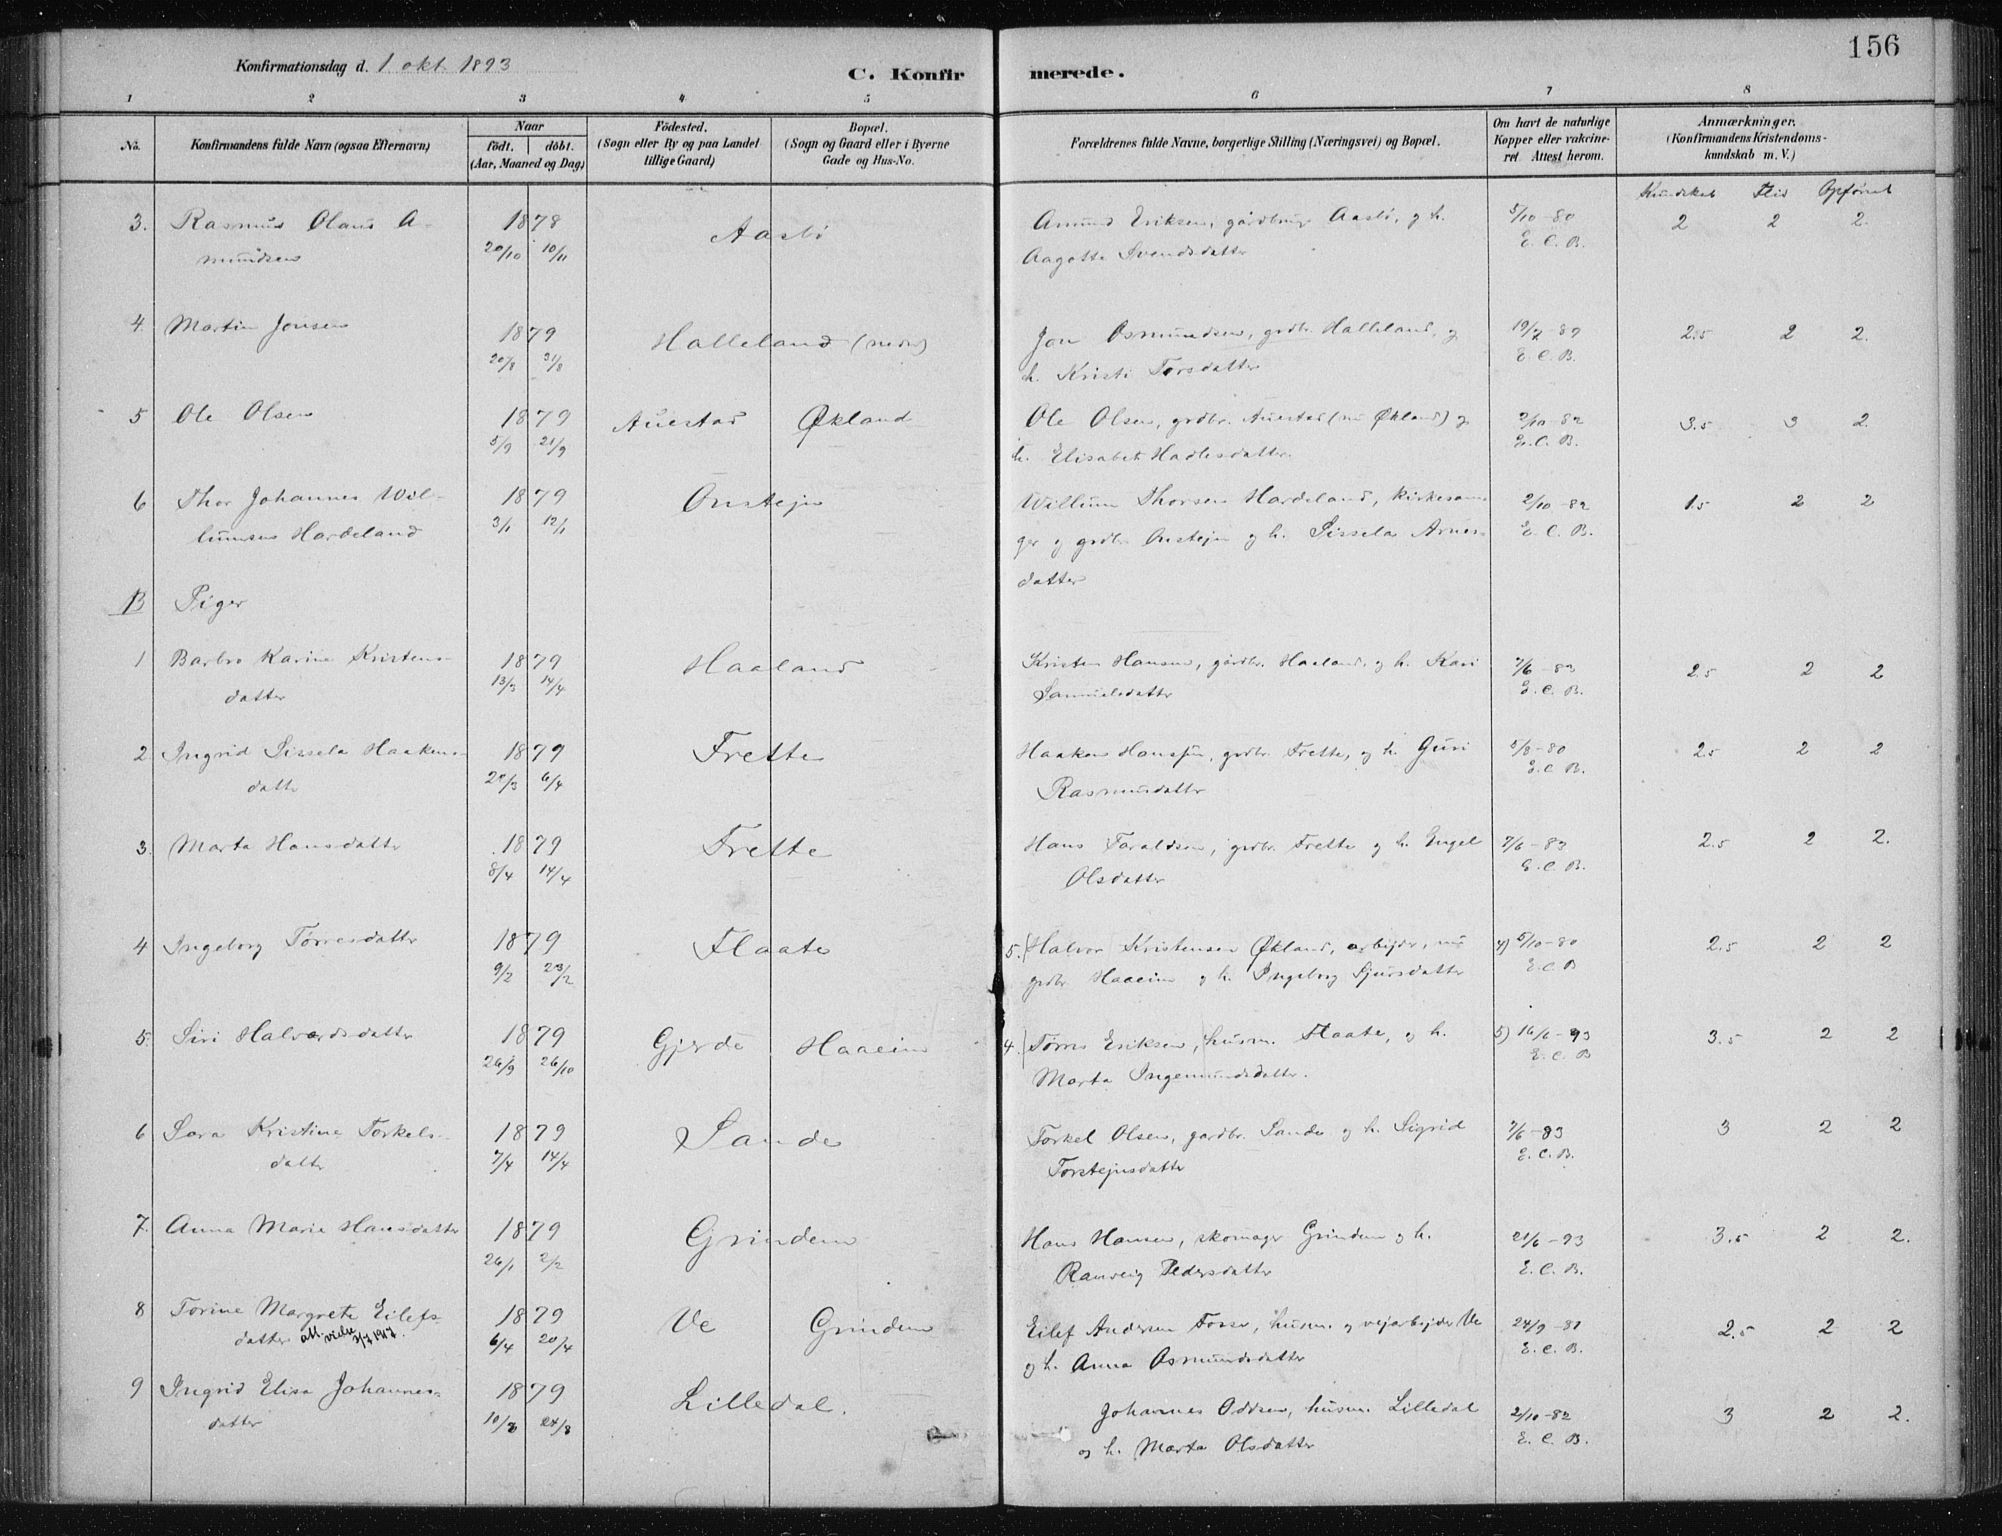 156
Konfirmationsdag d. 1 okt. 1893
C. Konfirmerede.
1 2 3 4 5 6 7 8
No. Konfirmandens fulde Navn (ogsaa Efternavn) Naar födt. döbt. (Aar, Maaned og Dag) Födested. (Sogn eller By og paa Landet tillige Gaard) Bopæl. (Sogn og Gaard eller i Byerne Gade og Hus-No. Forældrenes fulde Navne, borgerlige Stilling (Næringsvei) og Bopæl. Om havt de naturlige Kopper eller vakcineret. Attest herom. Anmærkninger. (Konfirmandens Kristendomskundskab m. V.)
Kundskab Flid Opførsel
3. Rasmus Olaus A- 1878 Aasbø Amund Eriksen, gårdbruger Aasbø, og h. 5/10-80 2 2 2.
mundsen 20/10 10/11 Aagotte Svendsdatter E. C. B.
4. Martin Jonsen 1879 Halleland (nedre) Jon Osmundsen, grdbr. Halleland, og 2.5 2 2.
20/8 31/8 h. Kristi Torsdatter E. C. B.
5 Ole Olsen 1879 Auestad Økland Ole Olsen, grdbr. Auestad (nu Økland) og 2/10-82 3.5 3 2.
5/9 21/9 h. Elisabet Hadlesdatter. E. C. B.
6 Thor Johannes Wil- 1879 Onstejn Willum Thorsen Hardeland, kirkesan- 2/10-82 1.5 2 2
lumsen Hardeland 3/1 12/1 ger og grdbr. Onstejn og h. Sissela Arnes- E. C. B.
datter
B Piger
1 Barbro Karine Kristens- 1879 Haaland Kristen Hansen, gårdbr. Haaland, og h. Kari 7/6-83 2.5 2 2
datter 13/3 14/4 Samuelsdatter E. C. B.
2 Ingrid Sissela Haakens- 1879 Frette Haaken Hansen, grdbr. Frette, og h. Guri 5/8-80 2.5 2 2
datter 6/4 Rasmusdatter E. C. B.
3. Marta Hansdatter 1879 Frette Hans Taraldsen, grdbr. Frette og h. Engel 7/6-83 2.5 2 2.
8/4 14/4 Olsdatter E. C. B.
4 Ingeborg Tørresdatter 1879 Flaate 5. Halvor Kristensen Økland, arbejder, nu 4) 5/10-80 2.5 2 2
9/2 23/2 grdbr. Haaeim og h. Ingeborg Sjursdatter E. C. B
5. Siri Halvordsdatter 1879 Gjerde Haaeim 4. Tørres Eriksen, husm. Flaate, og h. 5) 16/6-93 3.5 2 2
26/9 26/10 Marta Ingemundsdatter. E. C. B
6 Sara Kristine Torkels- 1879 Sande Torkel Olsen, gardbr. Sande og h. Sigrid 7/6-83 3 2 2
datter 7/4 14/4 Torstejnsdatter E. C. B.
7. Anna Marie Hansdatter 1879 Grindem Hans Hansen, skomager Grindem og h. 21/6-93 3.5 2 2.
26/1 2/2 Ranveig Pedersdatter E. C. B.
8 Torine Margrete Eilefs- 1879 Ve Grindem Eilef Andersen Fosse, husm. og vejarbejder Ve 24/9-81 2.5 2 2
datter att. vielse 7/7 1917. 6/4 20/4 og h. Anna Osmundsdatter E. C. B.
9 Ingrid Elisa Johannes- 1879 Lilledal. Johannes Oddsen, husm. Lilledal 2/10-82 3 2 2.
datter 10/8 24/8 og h. Marta Olsdatter E. C. B.